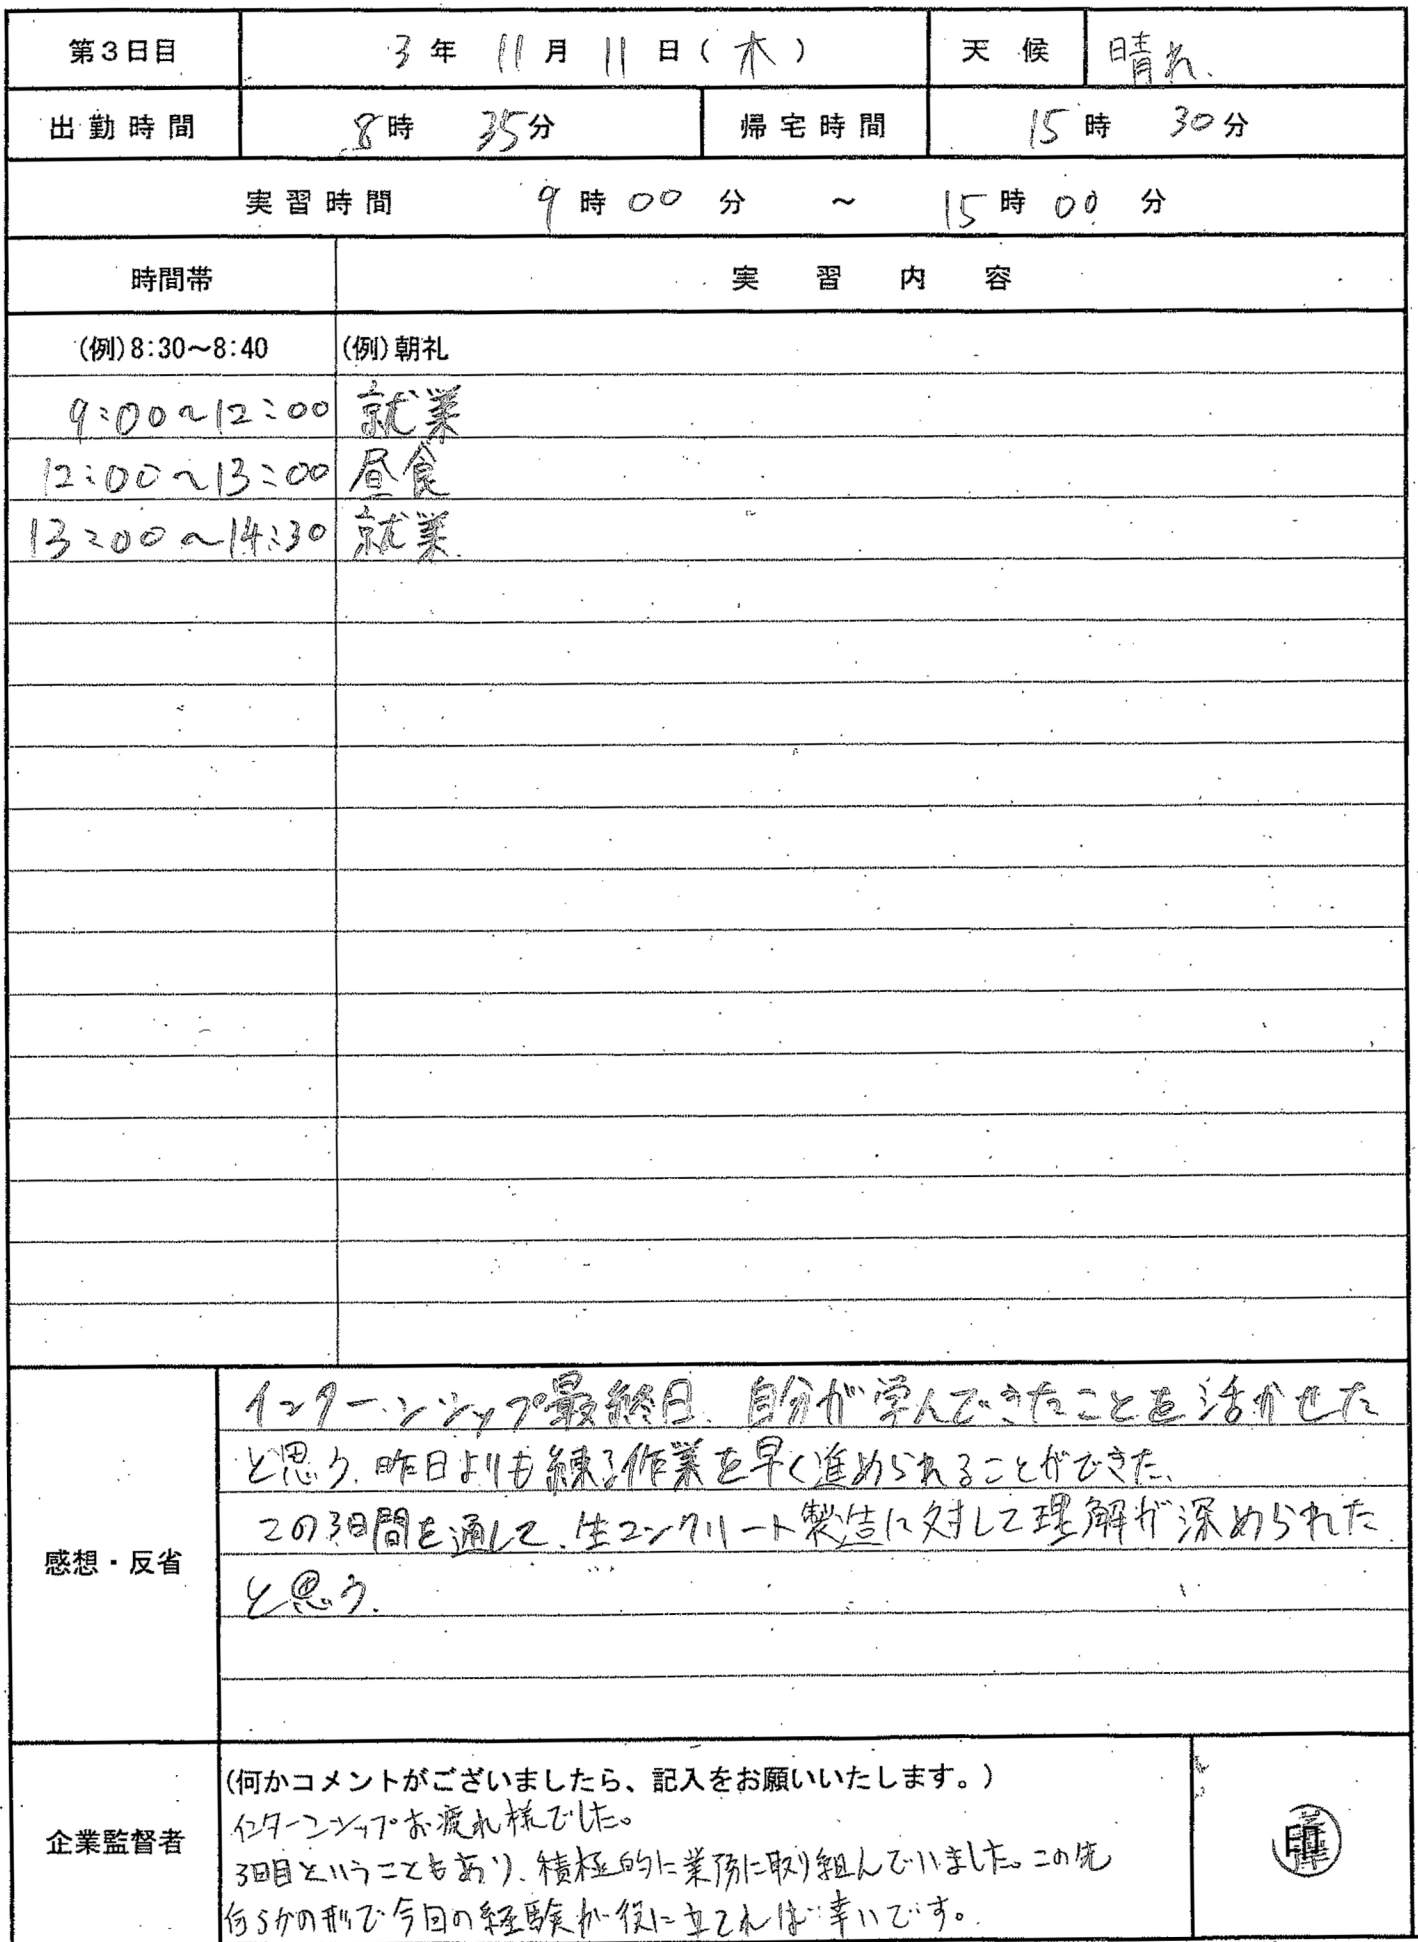 第3日目 3年 11月 11日(木) 天候 晴れ.
出勤時間 8時 35分 帰宅時間 15時 30分
実習時間 9時00分 ~ 15時00分
時間帯 実習内容
(例)8:30～8:40 (例)朝礼
9:00～12:00 就業
12:00～13:00 昼食
13:00～14:30 就業.
インターンシップ最終日、自分が学んできたことを活かせた
と思う。昨日よりも練る作業を早く進められることができた。
この3日間を通して、生コンクリート製造に対して理解が深められた
と思う。
感想・反省
(何かコメントがございましたら、記入をお願いいたします。)
インターンシップお疲れ様でした。
企業監督者
3日目ということもあり、積極的に業務に取り組んでいました。この先
何らかの形で今回の経験が役に立てれば幸いです。
印